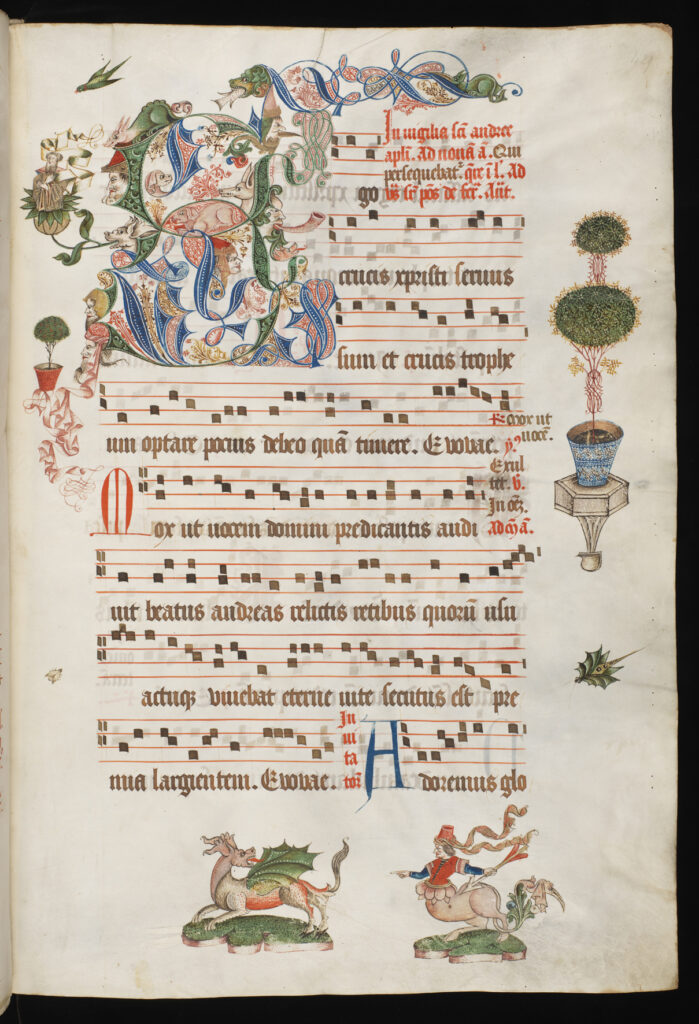 In uigilia sci andree
apli. Ad nonā a. Qui
persequebat². qre i l. Ad
vs̄ sc̄i pōs de fer. Ant.
Ego
crucis xpristi seruus
sum et crucis trophe
um optare pocius debeo quā timere. Evovae.
Mox ut
uocē.
Exul
tet. v.
In oēz.
Ad m̄ a.
Mox ut uocem domini predicantis audi
uit beatus andreas relictis retibus quorū usu
actuqz viuebat eterne uite secutus est pre
mia largientem. Evovae.
In
ui
ta
tor̄
Adoremus glo